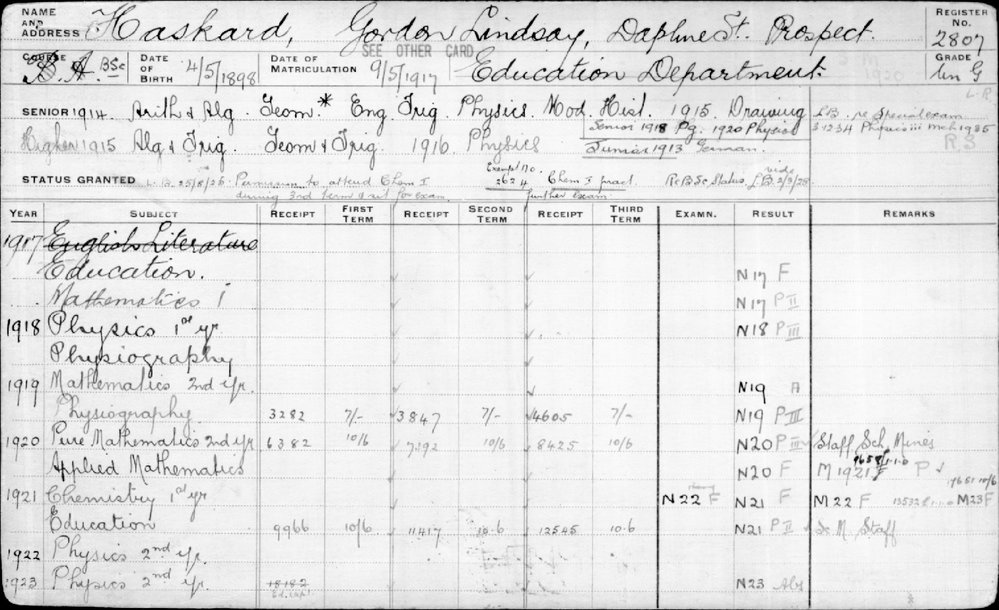 NAME AND ADDRESS Haskard, Gordon Lindsay, Daphne St. Prospect. REGISTER No. 2807
SEE OTHER CARD
COURSE B.A. BSc DATE OF BIRTH 4/5/1898 DATE OF MATRICULATION 9/5/1917 Education Department. GRADE Un G
SENIOR 1914 Arith & Alg. Geom* Eng Trig Physics Mod. Hist. 1915 Drawing
Senior 1918 Pg. 1920 Physics
Higher 1915 Alg & Trig. Geom & Trig. 1916 Physics Junior 1913 German.
L.B. re Special exam
Physics iii Mch 1925
STATUS GRANTED L.B. 25/8/25. Permission to attend Chem I Exempt no. 2624 Chem I pract. Re B.Sc Status, vide L.B. 2/3/25.
during 3rd term & sit for exam. further exam
YEAR SUBJECT RECEIPT FIRST TERM RECEIPT SECOND TERM RECEIPT THIRD TERM EXAMN. RESULT REMARKS
1917 English Literature
Education. N17 F
Mathematics I N17 P II
1918 Physics 1st yr. N18 P III
Physiography
1919 Mathematics 2nd yr. N19 A
Physiography 3282 7/- 3847 7/- 4605 7/- N19 P III
1920 Pure Mathematics 2nd yr 6382 10/6 7392 10/6 8425 10/6 N20 P III Staff Sch. Mines
Applied Mathematics N20 F M 1921 F P
1921 Chemistry 1st yr N22 F N21 F M22 F 13532 £1.1.0 M23 F
Education 9966 10/6 11417 10.6 12545 10.6 N21 P II Sc M Staff
1922 Physics 2nd yr.
1923 Physics 2nd yr. 18182 N23 Abs